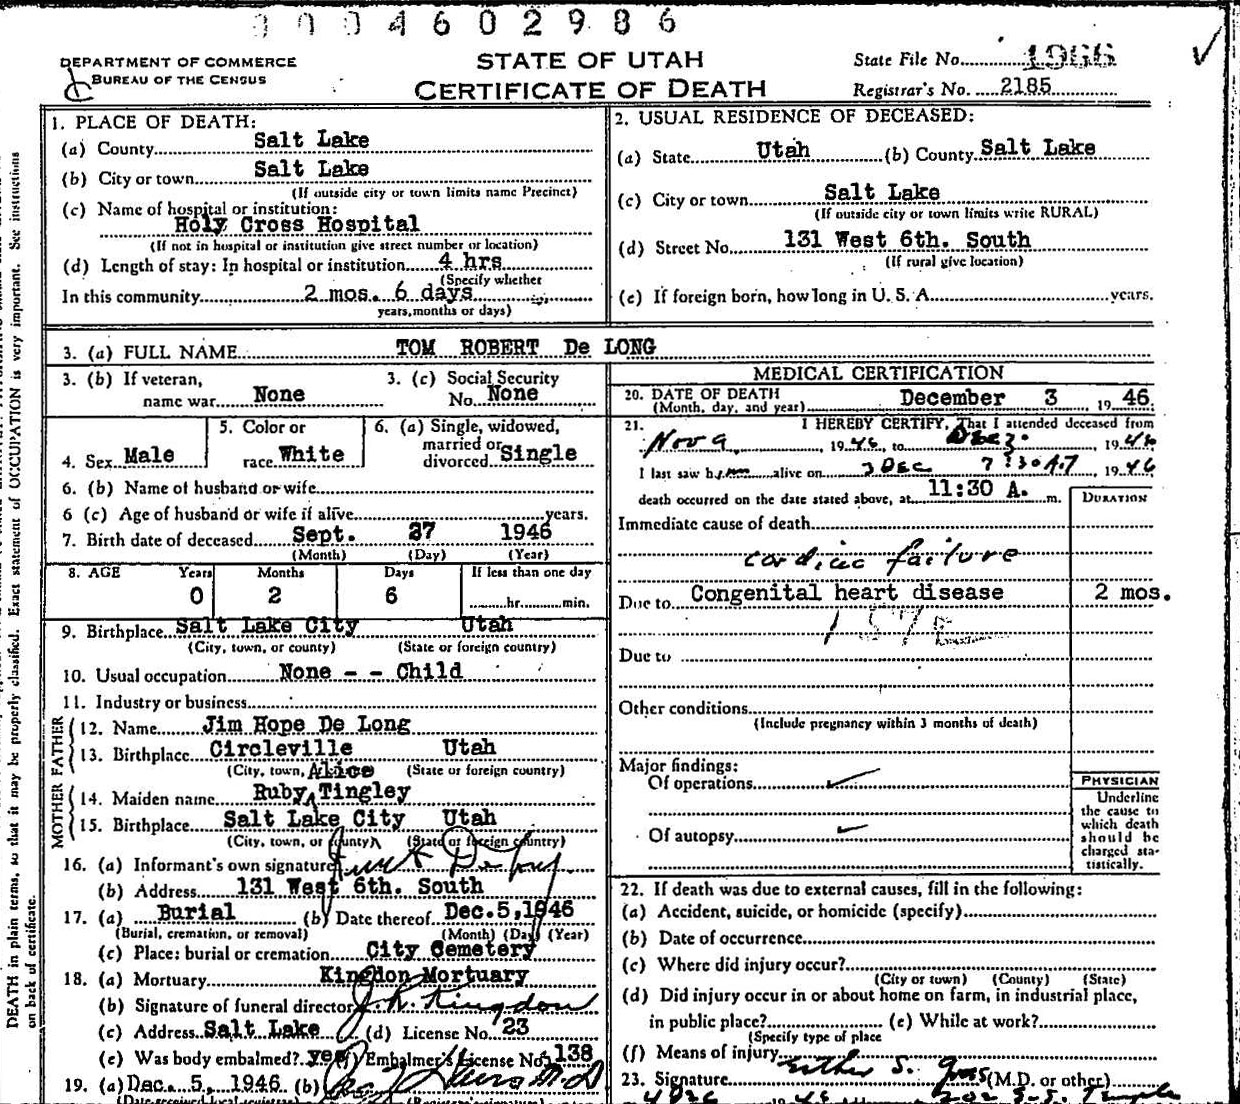 0004602986
DEPARTMENT OF COMMERCE
BUREAU OF THE CENSUS
STATE OF UTAH
CERTIFICATE OF DEATH
State File No. 1966
Registrar's No. 2185
DEATH in plain terms, so that it may be properly classified. Exact statement of OCCUPATION is very important. See instructions
on back of certificate.
1. PLACE OF DEATH:
(a) County Salt Lake
(b) City or town Salt Lake
(If outside city or town limits name Precinct)
(c) Name of hospital or institution:
Holy Cross Hospital
(If not in hospital or institution give street number or location)
(d) Length of stay: In hospital or institution 4 hrs
(Specify whether
In this community 2 mos. 6 days
years, months or days)
2. USUAL RESIDENCE OF DECEASED:
(a) State Utah (b) County Salt Lake
(c) City or town Salt Lake
(If outside city or town limits write RURAL)
(d) Street No. 131 West 6th. South
(If rural give location)
(e) If foreign born, how long in U. S. A. years.
3. (a) FULL NAME TOM ROBERT De LONG
3. (b) If veteran, name war None
3. (c) Social Security No. None
4. Sex Male
5. Color or race White
6. (a) Single, widowed, married or divorced Single
6. (b) Name of husband or wife
6 (c) Age of husband or wife if alive years.
7. Birth date of deceased Sept. 27 1946
(Month) (Day) (Year)
8. AGE Years Months Days If less than one day
0 2 6 hr. min.
9. Birthplace Salt Lake City Utah
(City, town, or county) (State or foreign country)
10. Usual occupation None - - Child
11. Industry or business
FATHER
12. Name Jim Hope De Long
13. Birthplace Circleville Utah
(City, town, (State or foreign country)
MOTHER
Alice
14. Maiden name Ruby Tingley
15. Birthplace Salt Lake City Utah
(City, town, or county) (State or foreign country)
16. (a) Informant's own signature
(b) Address 131 West 6th. South
17. (a) Burial (b) Date thereof Dec. 5, 1946
(Burial, cremation, or removal) (Month) (Day) (Year)
(c) Place: burial or cremation City Cemetery
18. (a) Mortuary Kingdon Mortuary
(b) Signature of funeral director J. R. Kingdon
(c) Address Salt Lake (d) License No. 23
(e) Was body embalmed? yes (f) Embalmer's License No. 138
19. (a) Dec. 5, 1946 (b) M.D
(Date received local registrar) (Registrar's signature)
MEDICAL CERTIFICATION
20. DATE OF DEATH
(Month, day, and year) December 3 1946.
21. I HEREBY CERTIFY, That I attended deceased from
Nov 9 1946, to Dec 3. 1946
I last saw him alive on 3 Dec 7:30 A.M 1946
death occurred on the date stated above, at 11:30 A. m.
DURATION
Immediate cause of death
cardiac failure
Due to Congenital heart disease 2 mos.
157E
Due to
Other conditions
(Include pregnancy within 3 months of death)
Major findings:
Of operations
Of autopsy
PHYSICIAN
Underline
the cause to
which death
should be
charged sta-
tistically.
22. If death was due to external causes, fill in the following:
(a) Accident, suicide, or homicide (specify)
(b) Date of occurrence
(c) Where did injury occur?
(City or town) (County) (State)
(d) Did injury occur in or about home on farm, in industrial place,
in public place? (e) While at work?
(Specify type of place
(f) Means of injury
23. Signature Esther S. (M.D. or other)
4 Dec 1946 Address 202 E. S. Temple